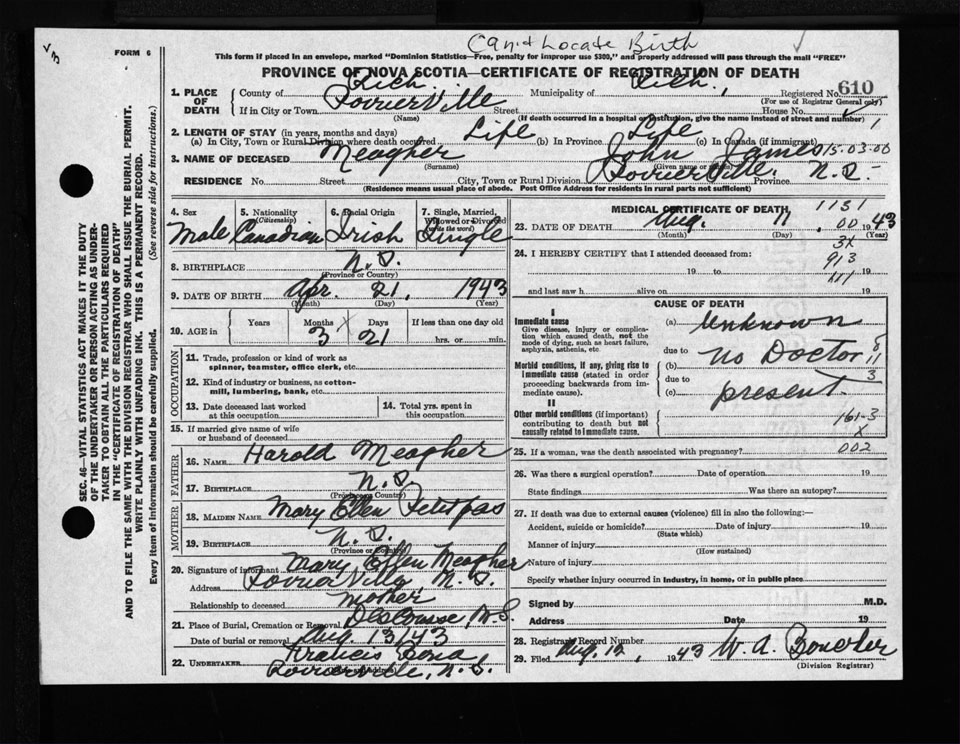 Can't Locate Birth
FORM 6
This form if placed in an envelope, marked "Dominion Statistics—Free, penalty for improper use $300," and properly addressed will pass through the mail "FREE"
PROVINCE OF NOVA SCOTIA—CERTIFICATE OF REGISTRATION OF DEATH
SEC. 46—VITAL STATISTICS ACT MAKES IT THE DUTY
OF THE UNDERTAKER OR PERSON ACTING AS UNDER-
TAKER TO OBTAIN ALL THE PARTICULARS REQUIRED
IN THE "CERTIFICATE OF REGISTRATION OF DEATH"
AND TO FILE THE SAME WITH THE DIVISION REGISTRAR WHO SHALL ISSUE THE BURIAL PERMIT.
WRITE PLAINLY WITH UNFADING INK. THIS IS A PERMANENT RECORD.
Every item of information should be carefully supplied. (See reverse side for instructions.)
1. PLACE OF DEATH County of Rich. Municipality of Rich. Registered No. 610
(For use of Registrar General only)
If in City or Town Poirierville Street House No.
(Name) (If death occurred in a hospital or institution, give the name instead of street and number)
2. LENGTH OF STAY (in years, months and days)
(a) In City, Town or Rural Division where death occurred Life (b) In Province Life (c) In Canada (if immigrant)
3. NAME OF DECEASED Meagher John James 015-03-00
(Surname) (Given name or names)
RESIDENCE No. Street City, Town or Rural Division Poirierville Province N.S.
(Residence means usual place of abode. Post Office Address for residents in rural parts not sufficient)
4. Sex Male
5. Nationality (Citizenship) Canadian
6. Racial Origin Irish
7. Single, Married, Widowed or Divorced (write the word) Single
8. BIRTHPLACE N.S.
(Province or Country)
9. DATE OF BIRTH Apr. 21, 1943
(Month) (Day) (Year)
10. AGE in Years Months 3 X Days 21 If less than one day old hrs. or min.
OCCUPATION
11. Trade, profession or kind of work as spinner, teamster, office clerk, etc.
12. Kind of industry or business, as cotton-mill, lumbering, bank, etc.
13. Date deceased last worked at this occupation
14. Total yrs. spent in this occupation
15. If married give name of wife or husband of deceased
FATHER
16. NAME Harold Meagher
17. BIRTHPLACE N.S.
(Province or Country)
MOTHER
18. MAIDEN NAME Mary Ellen Petitpas
19. BIRTHPLACE N.S.
(Province or Country)
20. Signature of informant Mary Ellen Meagher
Address Poirierville N.S.
Relationship to deceased mother
21. Place of Burial, Cremation or Removal DesCousse N.S.
Date of burial or removal Aug. 13/43
22. UNDERTAKER Francis
Poirierville, N.S.
MEDICAL CERTIFICATE OF DEATH 1131
23. DATE OF DEATH Aug. 11 00 1943
(Month) (Day) (Year)
3X
24. I HEREBY CERTIFY that I attended deceased from:
913
19 to 19
111
and last saw h alive on 19
CAUSE OF DEATH
I
Immediate cause
Give disease, injury or complication which caused death, not the mode of dying, such as heart failure, asphyxia, asthenia, etc.
(a) Unknown
due to
8
Morbid conditions, if any, giving rise to immediate cause (stated in order proceeding backwards from immediate cause).
(b) No Doctor 11
due to 3
(c) present.
II
Other morbid conditions (if important) contributing to death but not causally related to immediate cause.
161-3
X
25. If a woman, was the death associated with pregnancy? 002
26. Was there a surgical operation? Date of operation 19
State findings Was there an autopsy?
27. If death was due to external causes (violence) fill in also the following:—
Accident, suicide or homicide? Date of injury 19
(State which)
Manner of injury
(How sustained)
Nature of injury
Specify whether injury occurred in industry, in home, or in public place
Signed by M.D.
Address Date 19
28. Registrar's Record Number
29. Filed Aug. 12, 1943 W. A. Boucher
(Division Registrar)